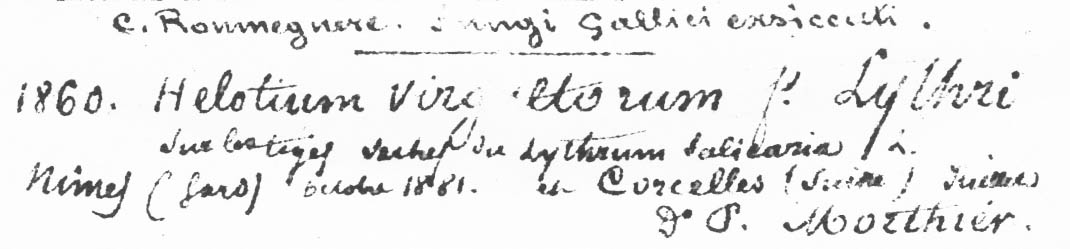 C. Roumeguere. Fungi Gallici exsiccati.
1860. Helotium Virgultorum f. Lythri
Sur les tiges seches du Lythrum Salicaria L.
Nimes (Gard) octobre 1881. et Corcelles (Suisse)
Dr P. Morthier.